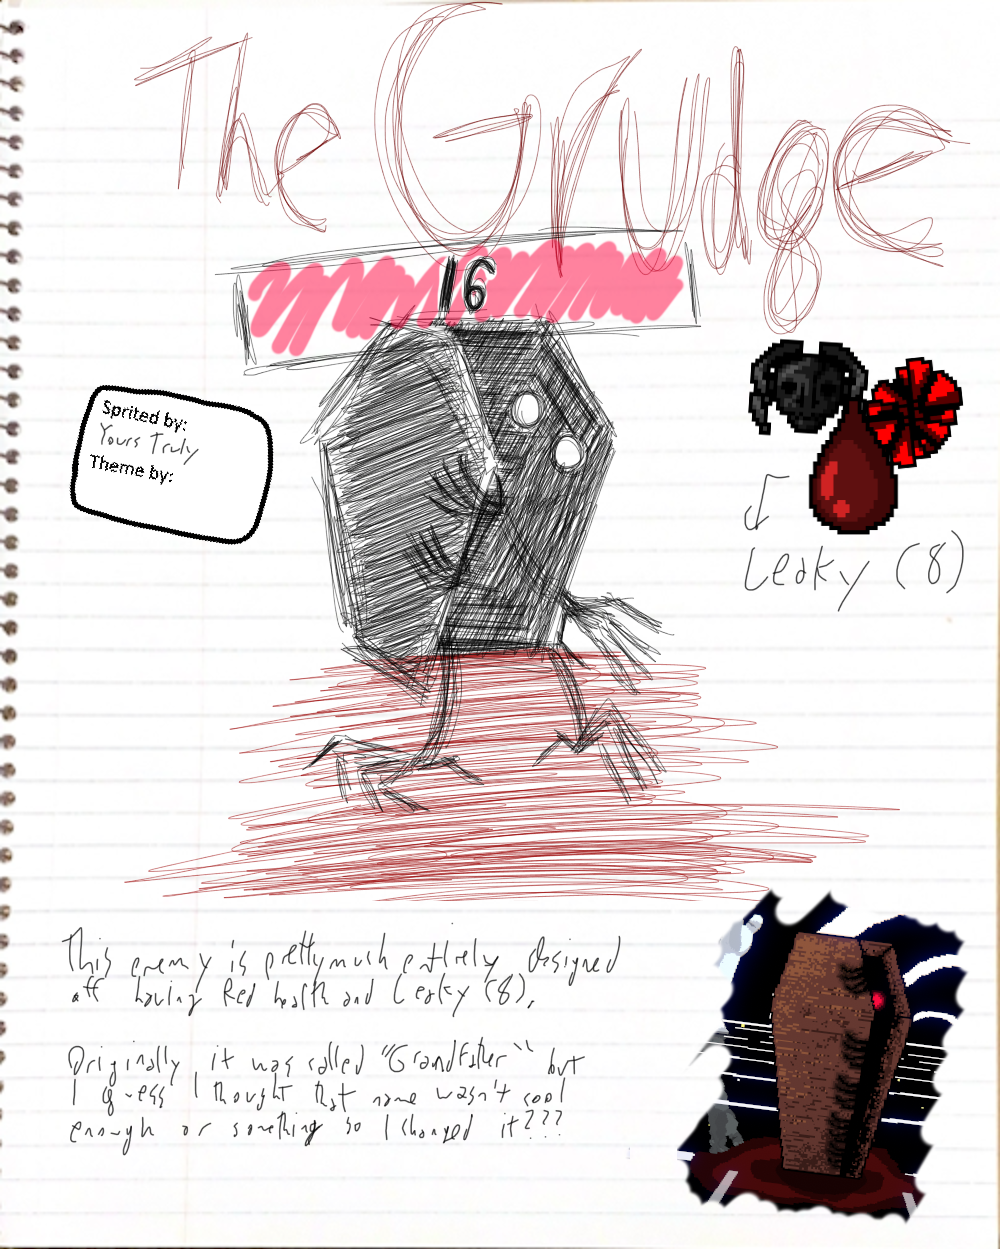 The Grudge
16
Sprited by:
Yours Truly
Theme by:
Leaky (8)
This enemy is prettymuch entirely designed
off having Red health and Leaky (8).
Originally it was called "Grandfather" but
I guess I thought that name wasn't cool
enough or something so I changed it???